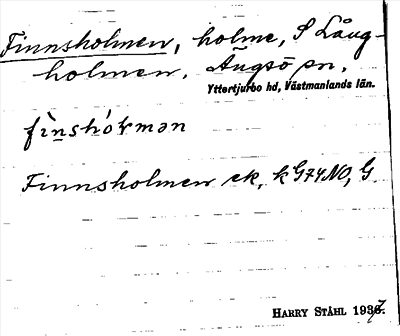 Finnsholmen, holme, S Lång-
holmen. Ängsö sn.
Yttertjurbo hd, Västmanlands län.
Finnsholmen ek, k G74NO, G.
HARRY STÅHL 1937.